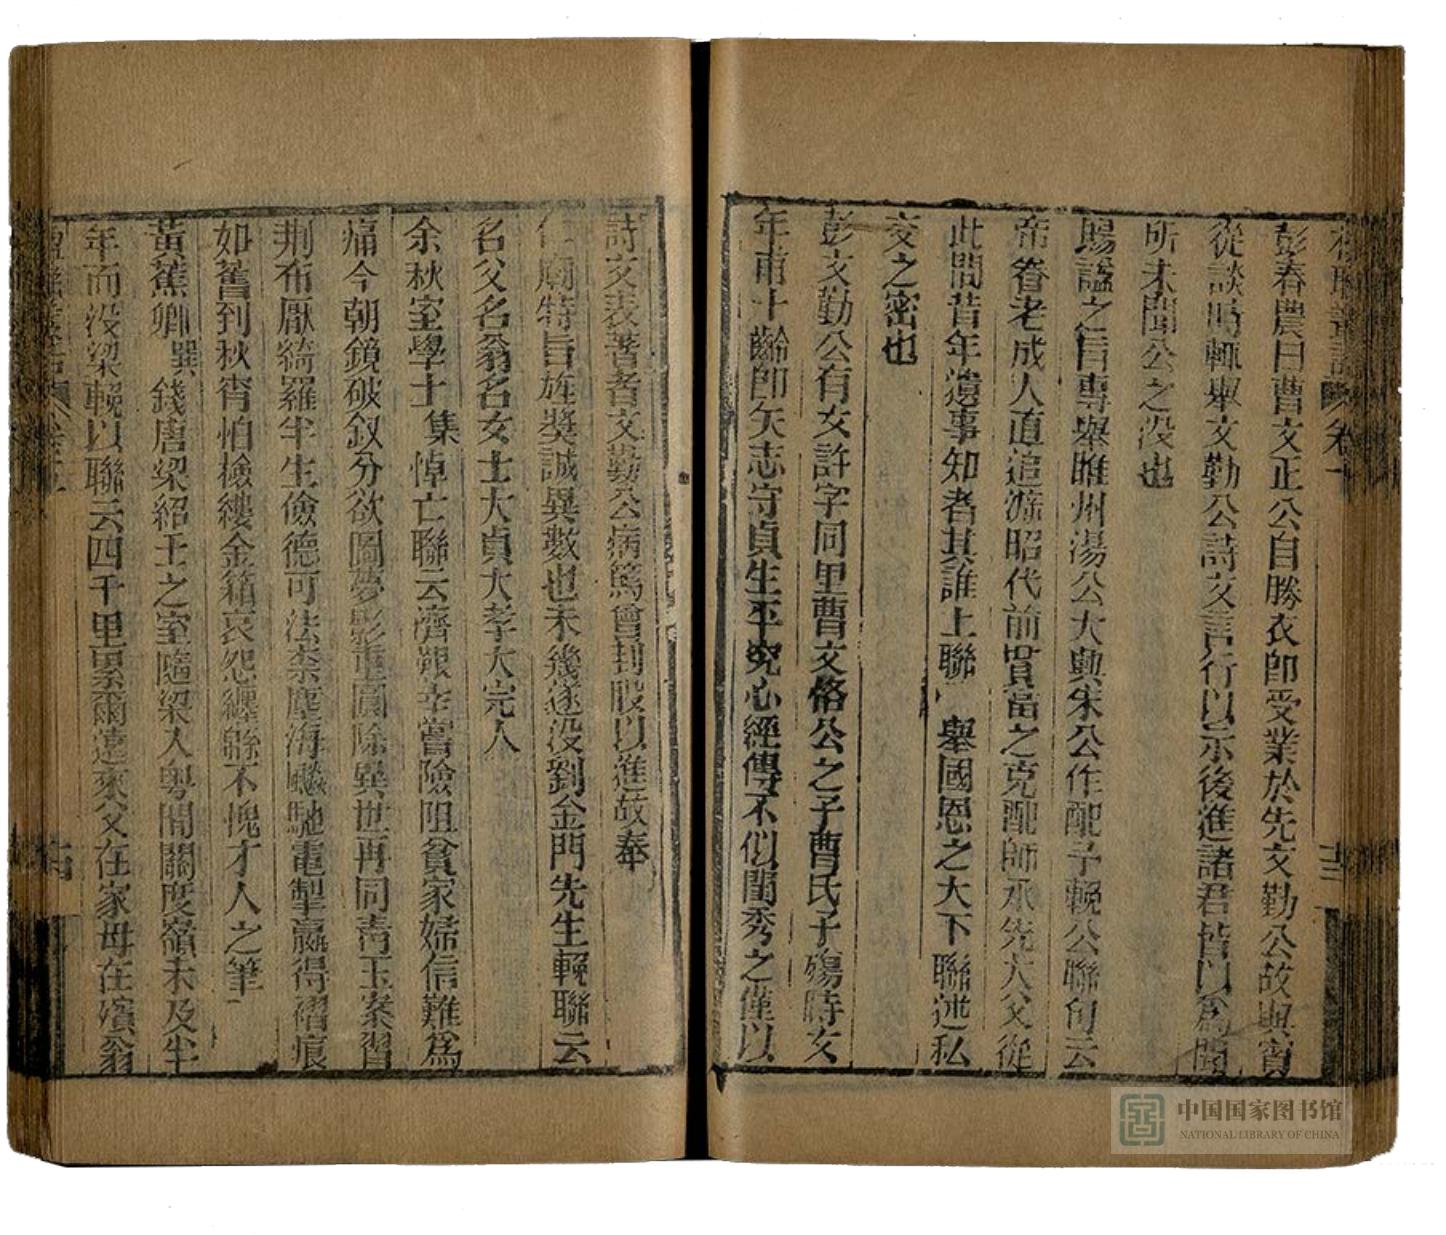 楹聯叢話 卷十
彭春農曰曹文正公自勝衣卽受業於先文勤公故與賓
從談時輒舉文勤公詩文言行以示後進諸君皆以爲聞
所未聞公之没也
賜諡之旨專舉睢州湯公大興朱公作配予輓公聯句云
帝眷老成人直追溯昭代前賢富之克配師承先大父從
此間昔年遺事知者其誰上聯 舉國恩之大下聯述私
交之密也
彭文勤公有女許字同里曹文恪公之子曹氏子殤時女
年甫十齡卽矢志守貞生平究心經傳不似閨秀之僅以
詩文表著者文勤公病篤曾刲股以進故奉
仁廟特旨旌獎誠異數也未幾遂没劉金門先生輓聯云
名父名翁名女士大貞大孝大完人
余秋室學士集悼亡聯云濟艱辛嘗險阻貧家婦信難爲
痛今朝鏡破釵分欲圖夢影重圓除異世再同靑玉案習
荆布厭綺羅半生儉德可法柰塵海飈馳電掣贏得褶痕
如舊到秋宵怕檢縷金箱哀怨纏緜不愧才人之筆
黃蕉卿巽錢唐梁紹壬之室隨梁入粵閒關度嶺未及半
年而没梁輓以聯云四千里累爾遠來父在家母在殯翁
十三
十四
中国国家图书馆
NATIONAL LIBRARY OF CHINA